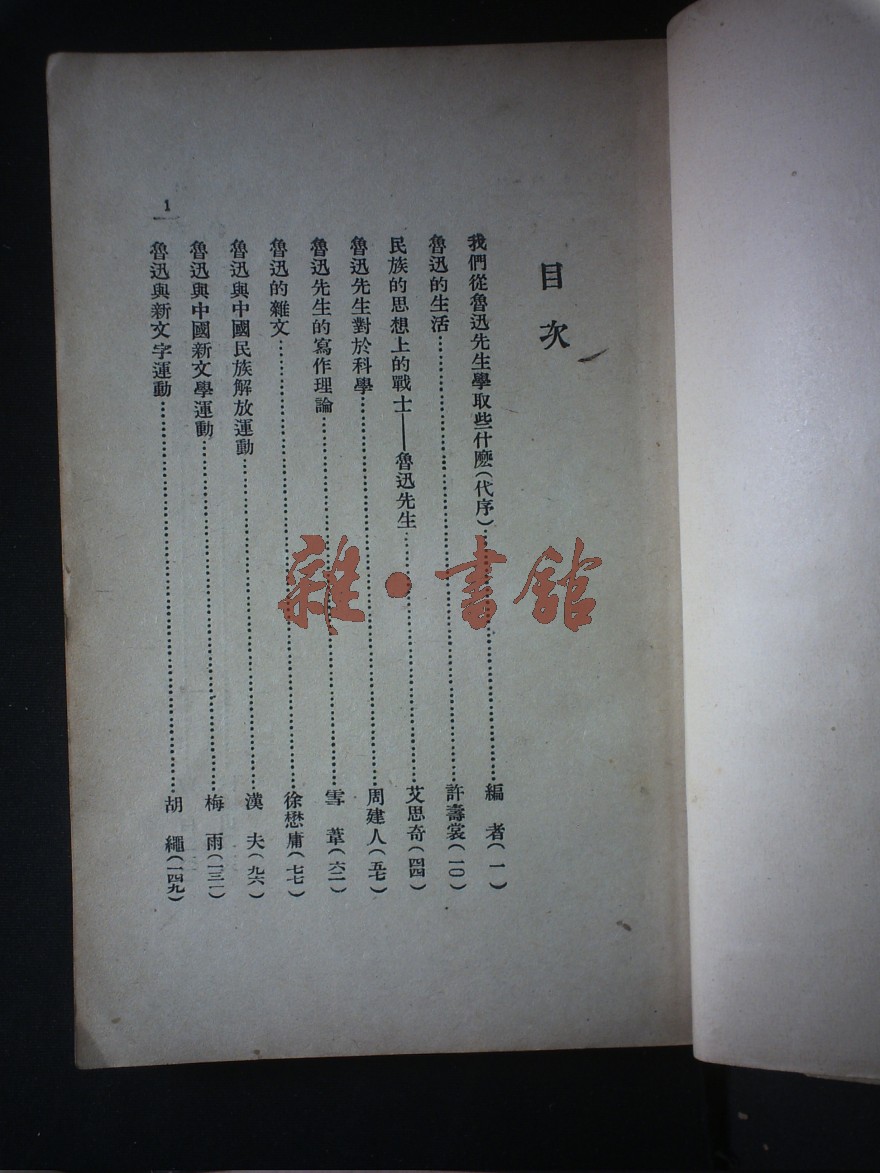 目次
我們從魯迅先生學取些什麽(代序)……編 者(一)
魯迅的生活……許壽裳(一〇)
民族的思想上的戰士——魯迅先生……艾思奇(四四)
魯迅先生對於科學……周建人(五七)
魯迅先生的寫作理論……雪 葦(六二)
魯迅的雜文……徐懋庸(七七)
魯迅與中國民族解放運動……漢 夫(九六)
魯迅與中國新文學運動……梅 雨(一三一)
魯迅與新文字運動……胡 繩(一四九)
1
雜·書館